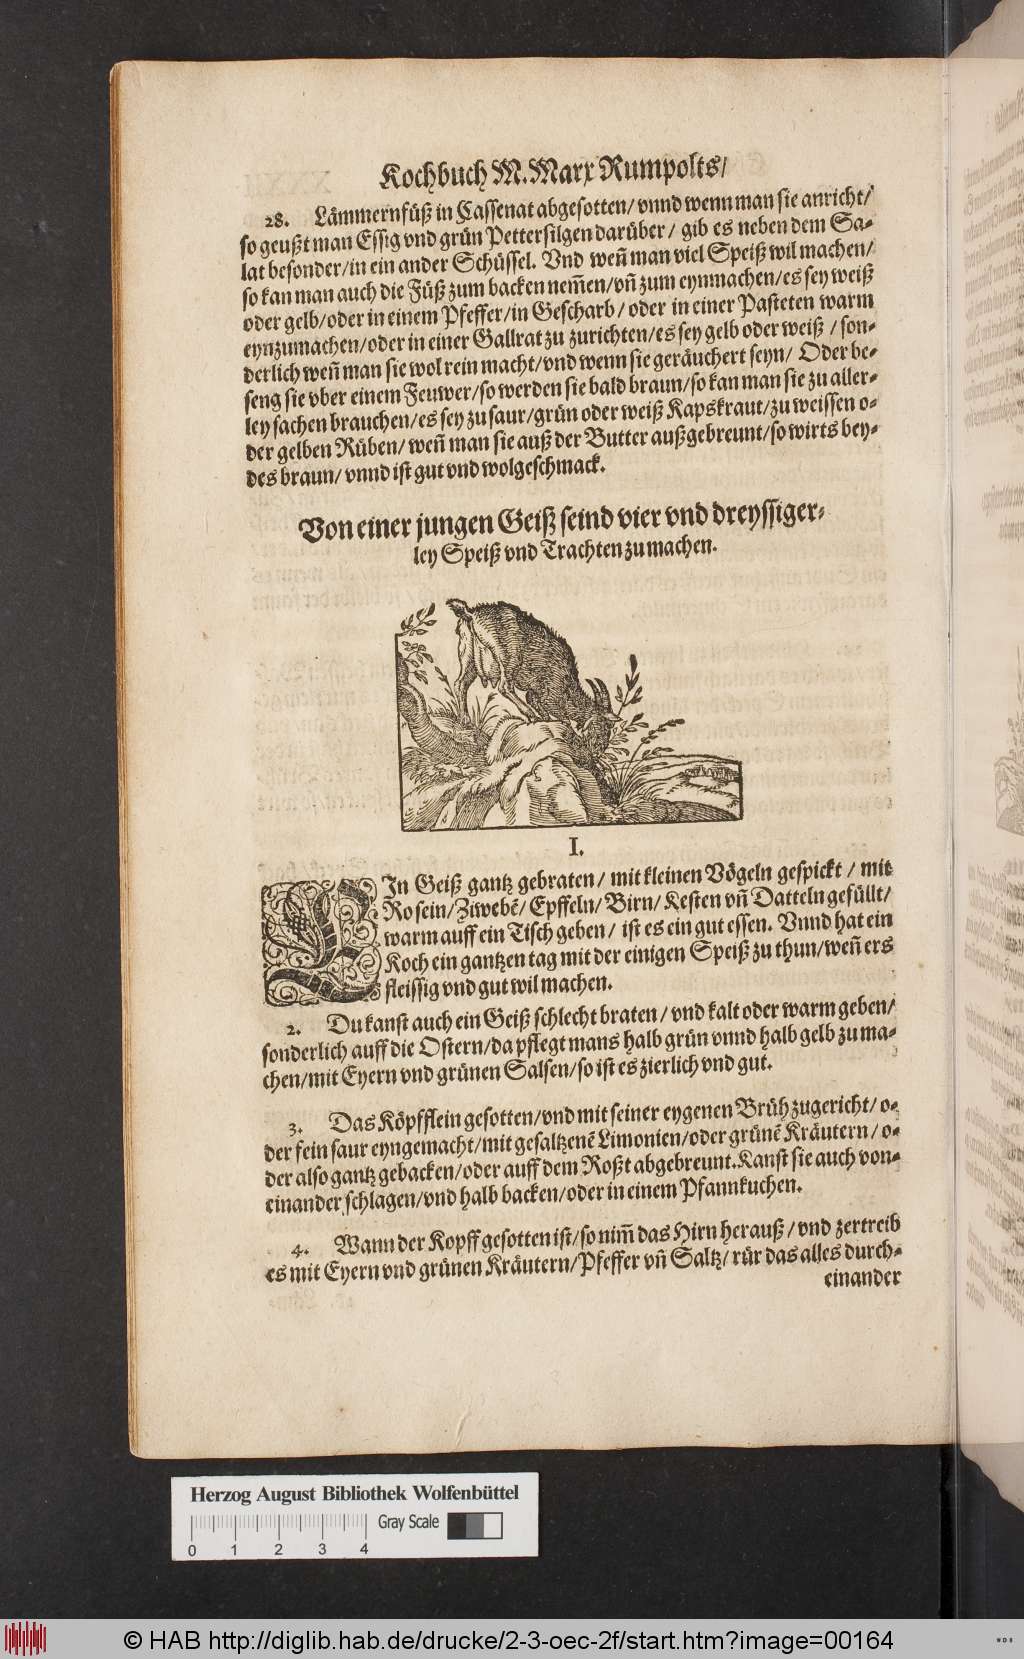 Kochbuch M. Marx Rumpolts/
28. Lämmernfüß in Cassenat abgesotten/ vnnd wenn man sie anricht/
so geußt man Essig vnd grün Pettersilgen darüber/ gib es neben dem Sa-
lat besonder/in ein ander Schüssel. Vnd weñ man viel Speiß wil machen/
so kan man auch die Füß zum backen nem̃en/vñ zum eynmachen/es sey weiß
oder gelb/oder in einem Pfeffer/in Gescharb/ oder in einer Pasteten warm
eynzumachen/oder in einer Gallrat zu zurichten/es sey gelb oder weiß/ son-
derlich weñ man sie wol rein macht/vnd wenn sie geräuchert seyn/ Oder be-
seng sie vber einem Feuwer/so werden sie bald braun/so kan man sie zu aller-
ley sachen brauchen/es sey zu saur/grün oder weiß Kapskraut/zu weissen o-
der gelben Rüben/ weñ man sie auß der Butter außgebreunt/so wirts bey-
des braun/ vnnd ist gut vnd wolgeschmack.
Von einer jungen Geiß seind vier vnd dreyssiger-
ley Speiß vnd Trachten zu machen.
I.
EIn Geiß gantz gebraten/ mit kleinen Vögeln gespickt/ mit
Rosein/Ziwebẽ/ Epffeln/ Birn/ Kesten vñ Datteln gefüllt/
warm auff ein Tisch geben/ ist es ein gut essen. Vnnd hat ein
Koch ein gantzen tag mit der einigen Speiß zu thun/weñ ers
fleissig vnd gut wil machen.
2. Du kanst auch ein Geiß schlecht braten/ vnd kalt oder warm geben/
sonderlich auff die Ostern/da pflegt mans halb grün vnnd halb gelb zu ma-
chen/mit Eyern vnd grünen Salsen/so ist es zierlich vnd gut.
3. Das Köpfflein gesotten/vnd mit seiner eygenen Brüh zugericht/ o-
der fein saur eyngemacht/mit gesaltzenẽ Limonien/oder grünẽ Kräutern/ o-
der also gantz gebacken/oder auff dem Roßt abgebreunt. Kanst sie auch von-
einander schlagen/vnd halb backen/oder in einem Pfannkuchen.
4. Wann der Kopff gesotten ist/so nim̃ das Hirn herauß/ vnd zertreib
es mit Eyern vnd grünen Kräutern/Pfeffer vñ Saltz/ rür das alles durch-
einander
Herzog August Bibliothek Wolfenbüttel
Gray Scale
0 1 2 3 4
© HAB http://diglib.hab.de/drucke/2-3-oec-2f/start.htm?image=00164